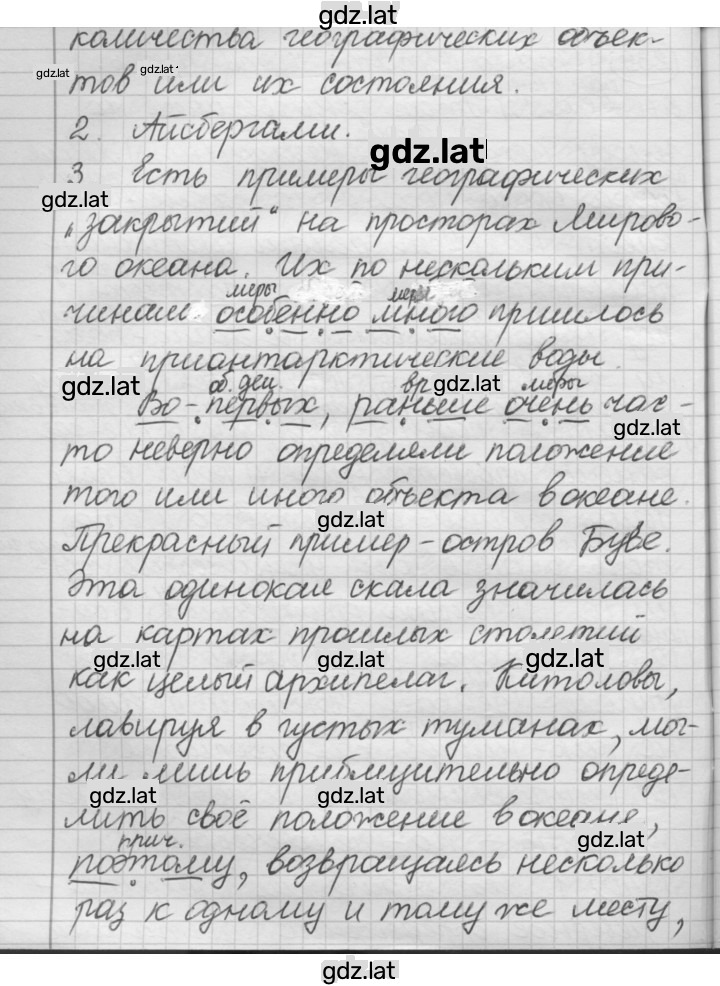 gdz.lat
количества географических объек-
gdz.lat gdz.lat
тов или их состояния.
2. Айсбергами.
gdz.lat
3 Есть примеры географических
gdz.lat
„закрытий“ на просторах Мирово-
го океана. Их по нескольким при-
меры меры
чинам особенно много пришлось
на приантарктические воды.
gdz.lat об. дей. вр gdz.lat меры
Во-первых, раньше очень час-
gdz.lat
то неверно определяли положение
того или иного объекта в океане.
gdz.lat
Прекрасный пример - остров Буве.
Эта одинокая скала значилась
на картах прошлых столетий
gdz.lat gdz.lat gdz.lat
как целый архипелаг. Китоловы,
лавируя в густых туманах, мог-
ли лишь приблизительно опреде-
gdz.lat gdz.lat
лить своё положение в океане,
прич. gdz.lat
поэтому, возвращаясь несколько
раз к одному и тому же месту,
gdz.lat